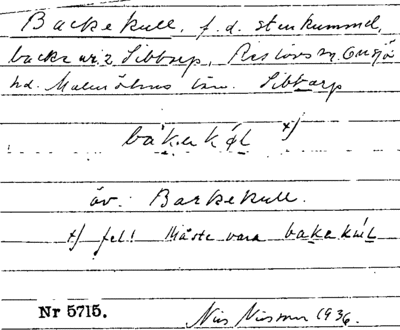 Backekull, f.d. stenkummel,
backe nr 2 Sibbarp, Riseberga sn. Onsjö
hd. Malmöhus län. Sibbarp
bákekól x)
äv. Barkekull.
x) fel! Måste vara bakekúl
Nr 5715. Nils Nilsson 1936.